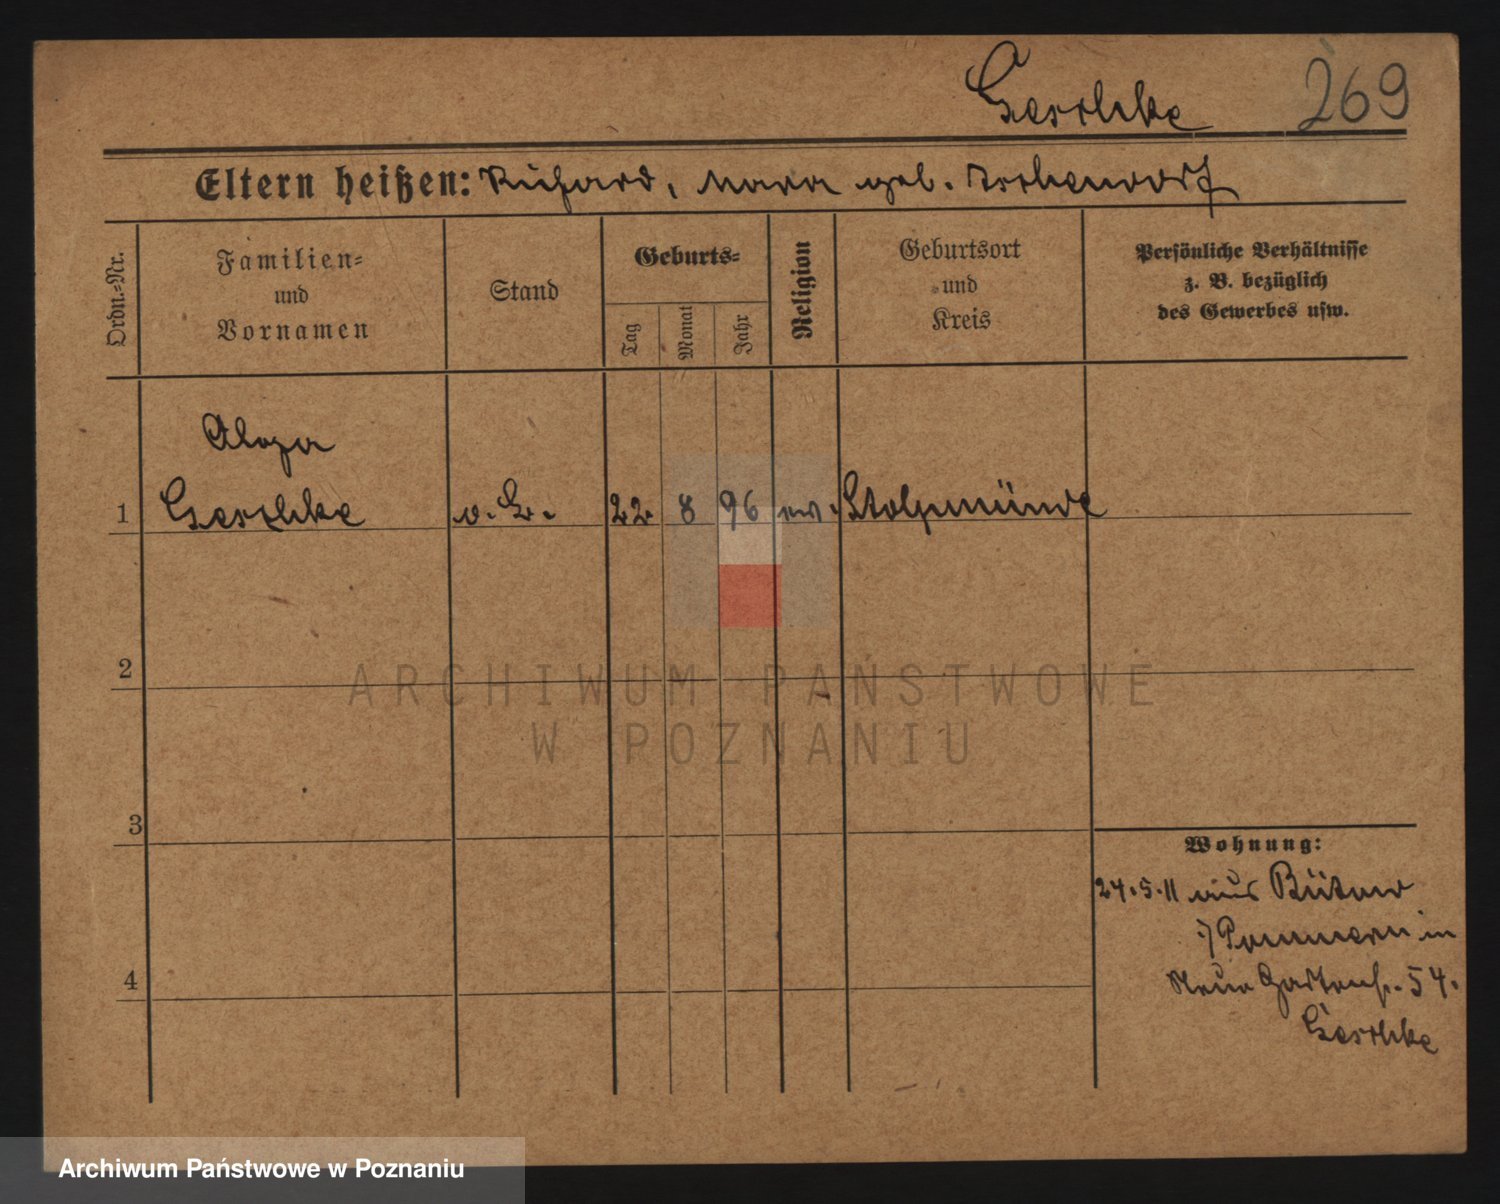 Geschke 269
Eltern heißen: Richard, Maria geb.
Ordn.-Nr.
Familien-
und
Vornamen
Stand
Geburts-
Tag
Monat
Jahr
Religion
Geburtsort
und
Kreis
Persönliche Verhältnisse
z. B. bezüglich
des Gewerbes usw.
1 Geschke 22 8 96 ev. Stolpmünde
2
ARCHIWUM PAŃSTWOWE
W POZNANIU
3
Wohnung:
24.5.11 aus Bütow
Pommern in
Neue Gartenstr. 54.
Geschke
4
Archiwum Państwowe w Poznaniu